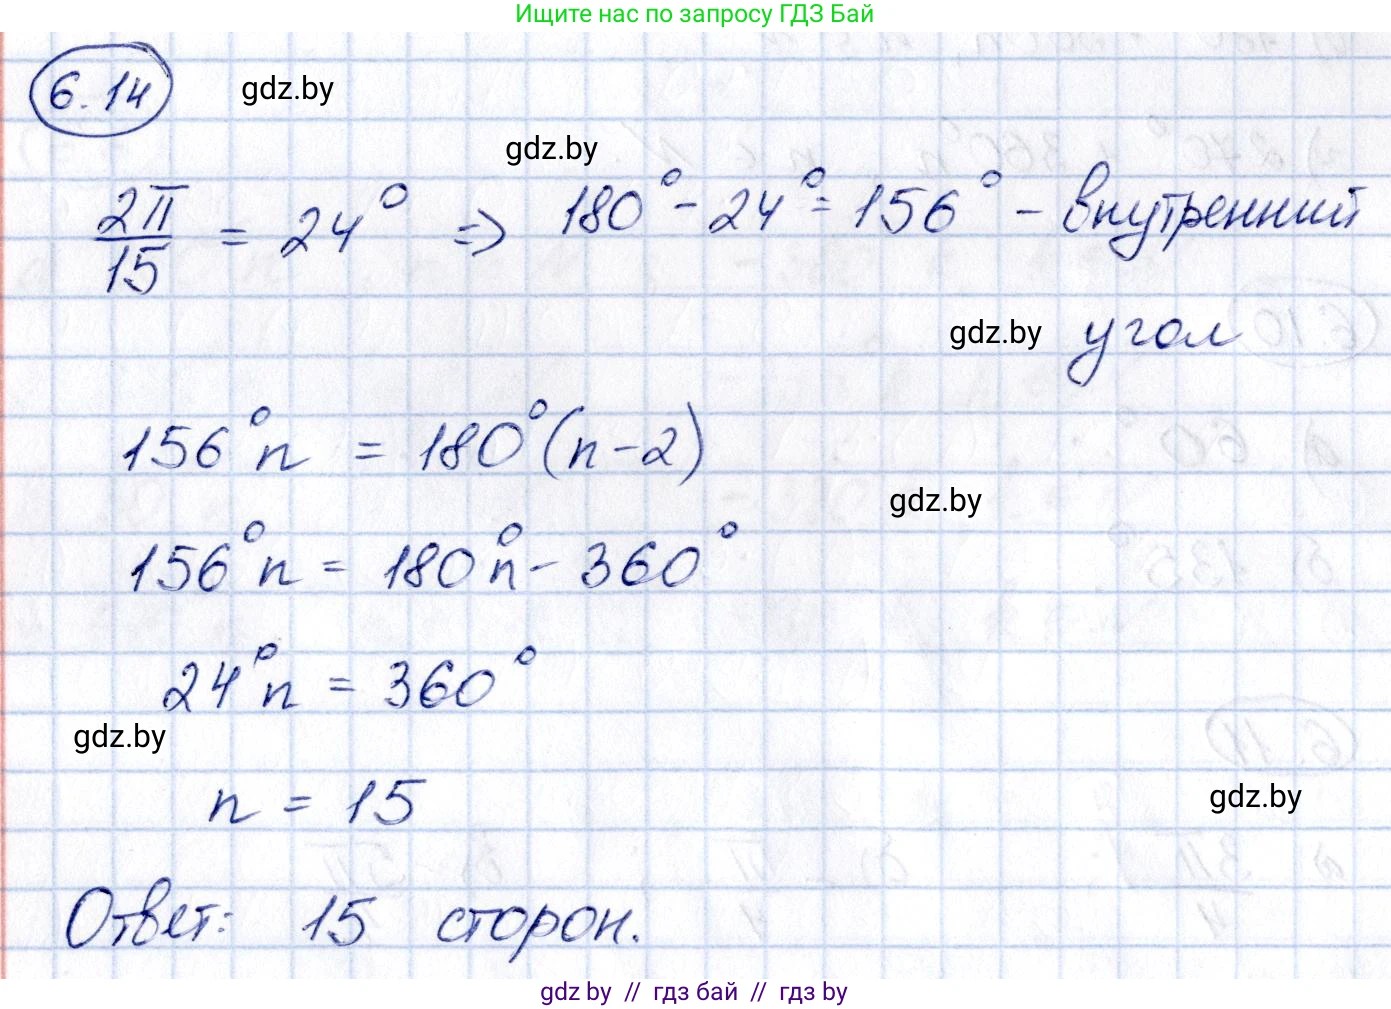 Ищите нас по запросу ГДЗ Бай
6.14
gdz.by
gdz.by
2π/15 = 24° => 180° - 24° = 156° - внутренний
gdz.by угол
156°n = 180°(n-2)
gdz.by
156°n = 180°n - 360°
24°n = 360°
gdz.by
n = 15
gdz.by
Ответ: 15 сторон.
gdz by // гдз бай // гдз by